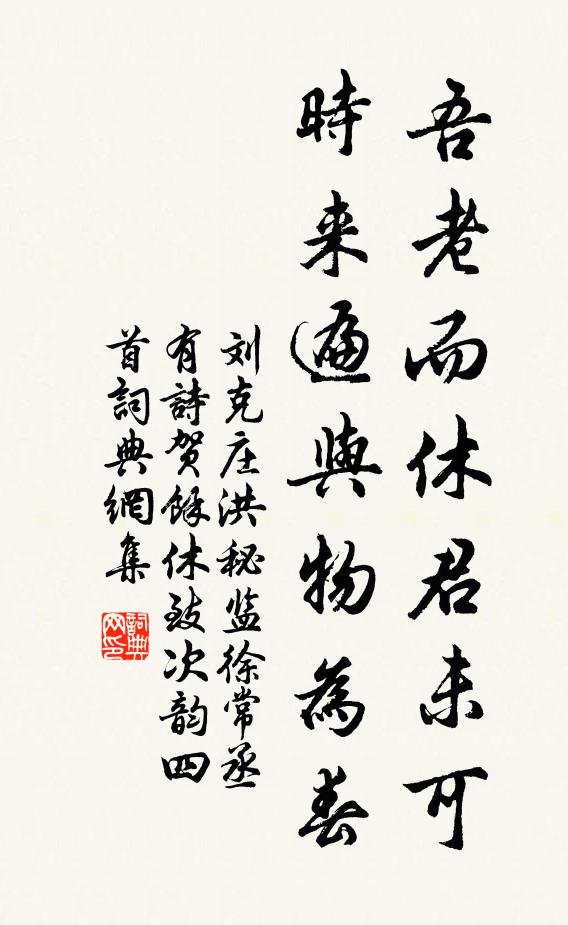 吾老而休君未可
時来遍與物為春
刘克庄洪秘监徐常丞
有詩贺馀休致次韵四
首詞典網集
詞典网印